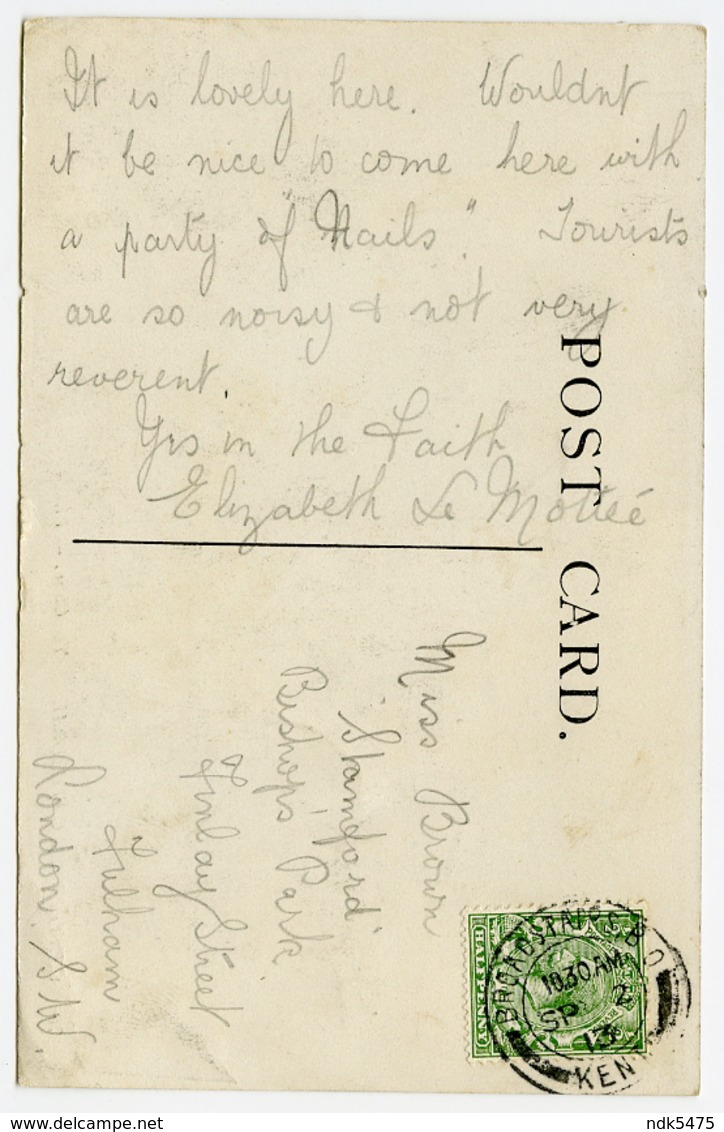 It is lovely here. Wouldnt
it be nice to come here with
a party of "Nails". Tourists
are so noisy & not very
reverent.
Yrs in the Faith
Elizabeth Le Mottée
POST CARD.
Miss Brown
'Stamford'
Bishop's Park
Finlay Street
Fulham
London. S.W.
HALFPENNY
BROADSTAIRS S.B.O
10.30 AM
SP 2
13
KENT
ndk5475